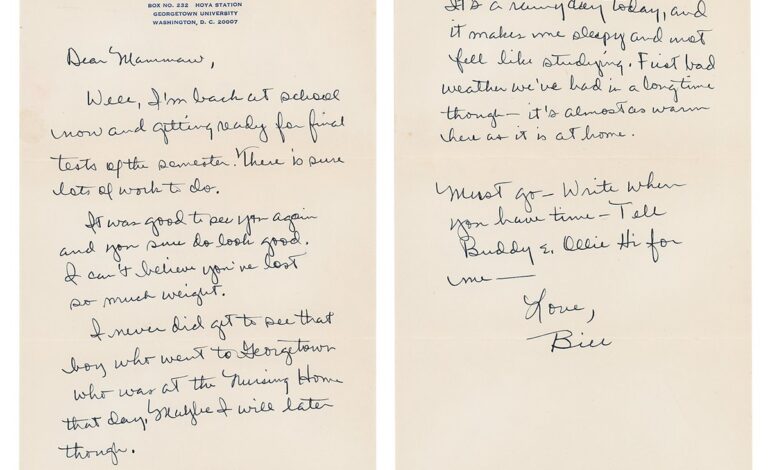 BOX NO. 232 HOYA STATION
GEORGETOWN UNIVERSITY
WASHINGTON, D. C. 20007
Dear Mammaw,
Well, I'm back at school
now and getting ready for final
tests of the semester. There is sure
lots of work to do.
It was good to see you again
and you sure do look good.
I can't believe you've lost
so much weight.
I never did get to see that
boy who went to Georgetown
who was at the Nursing Home
that day. Maybe I will later
though.
It's a rainy day today, and
it makes me sleepy and not
feel like studying. First bad
weather we've had in a long time
though — it's almost as warm
here as it is at home.
Must go — Write when
you have time — Tell
Buddy & Ollie Hi for
me —
Love,
Bill